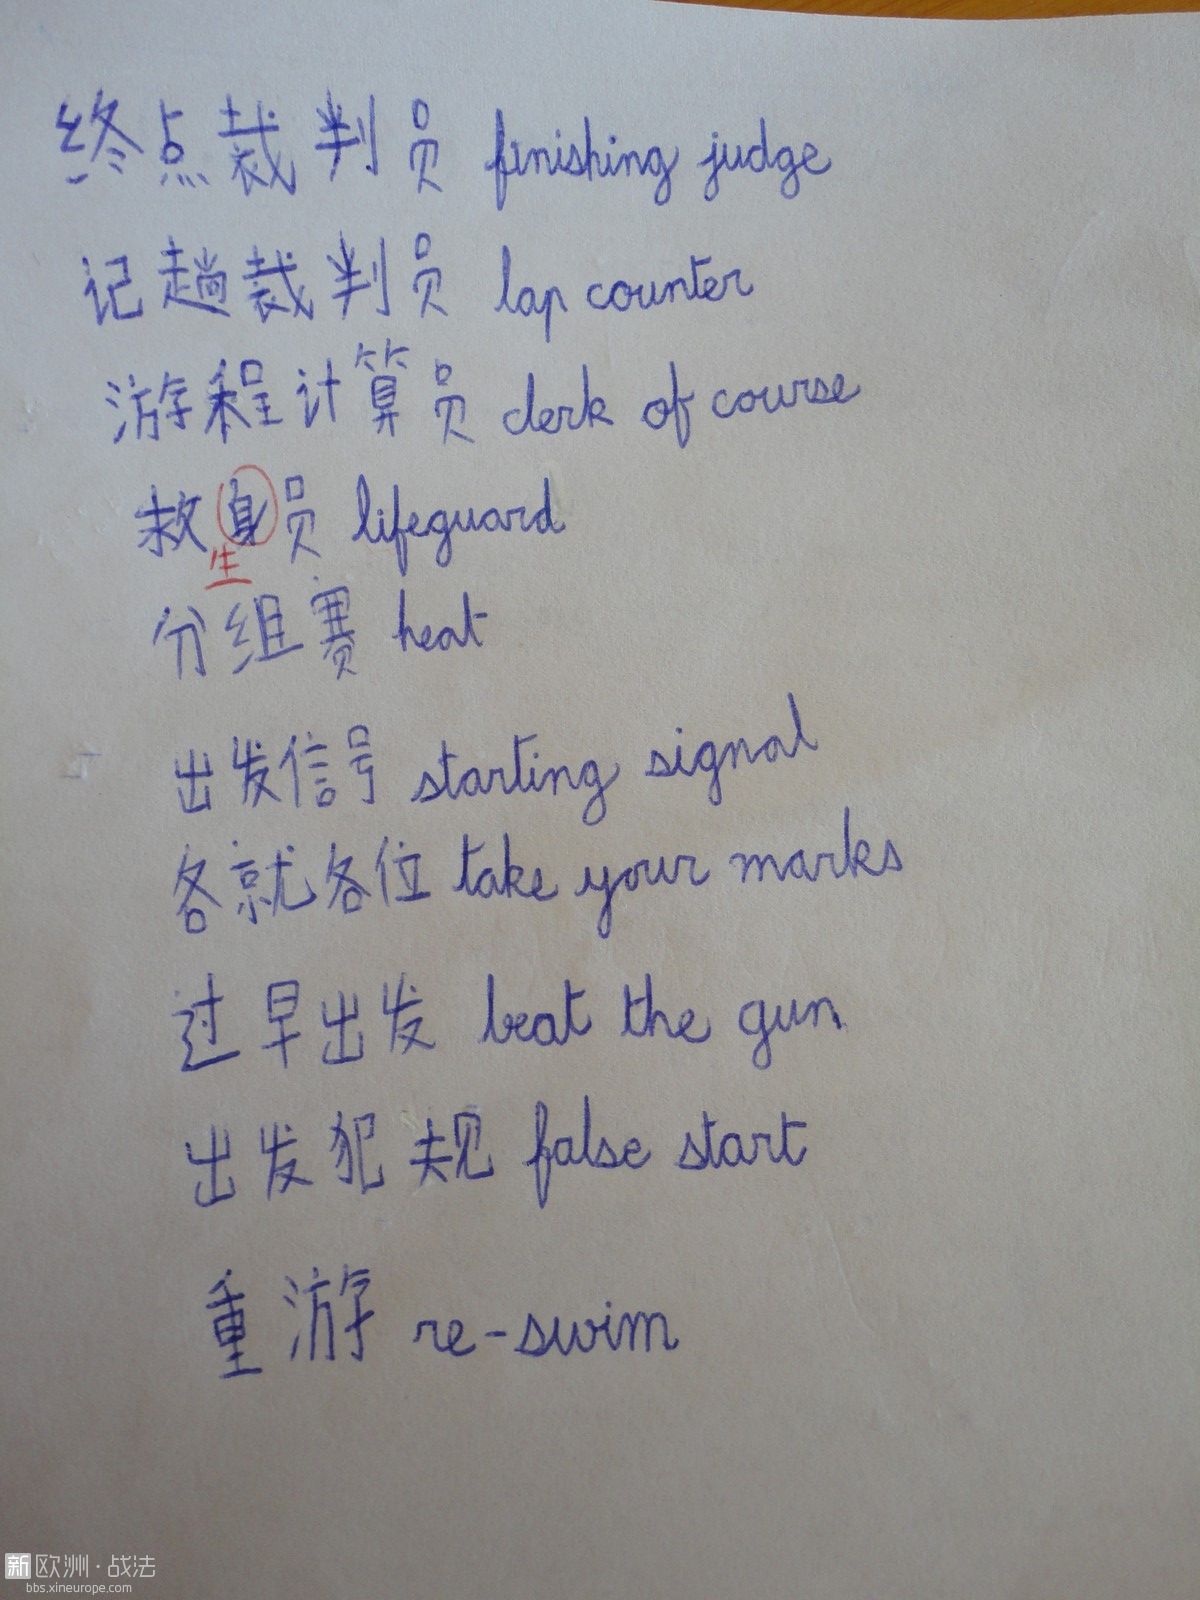 终点裁判员 finishing judge
记趟裁判员 lap counter
游程计算员 clerk of course
救身员 lifeguard
生
分组赛 heat
出发信号 starting signal
各就各位 take your marks
过早出发 beat the gun
出发犯规 false start
重游 re-swim
新欧洲·战法
bbs.xineurope.com